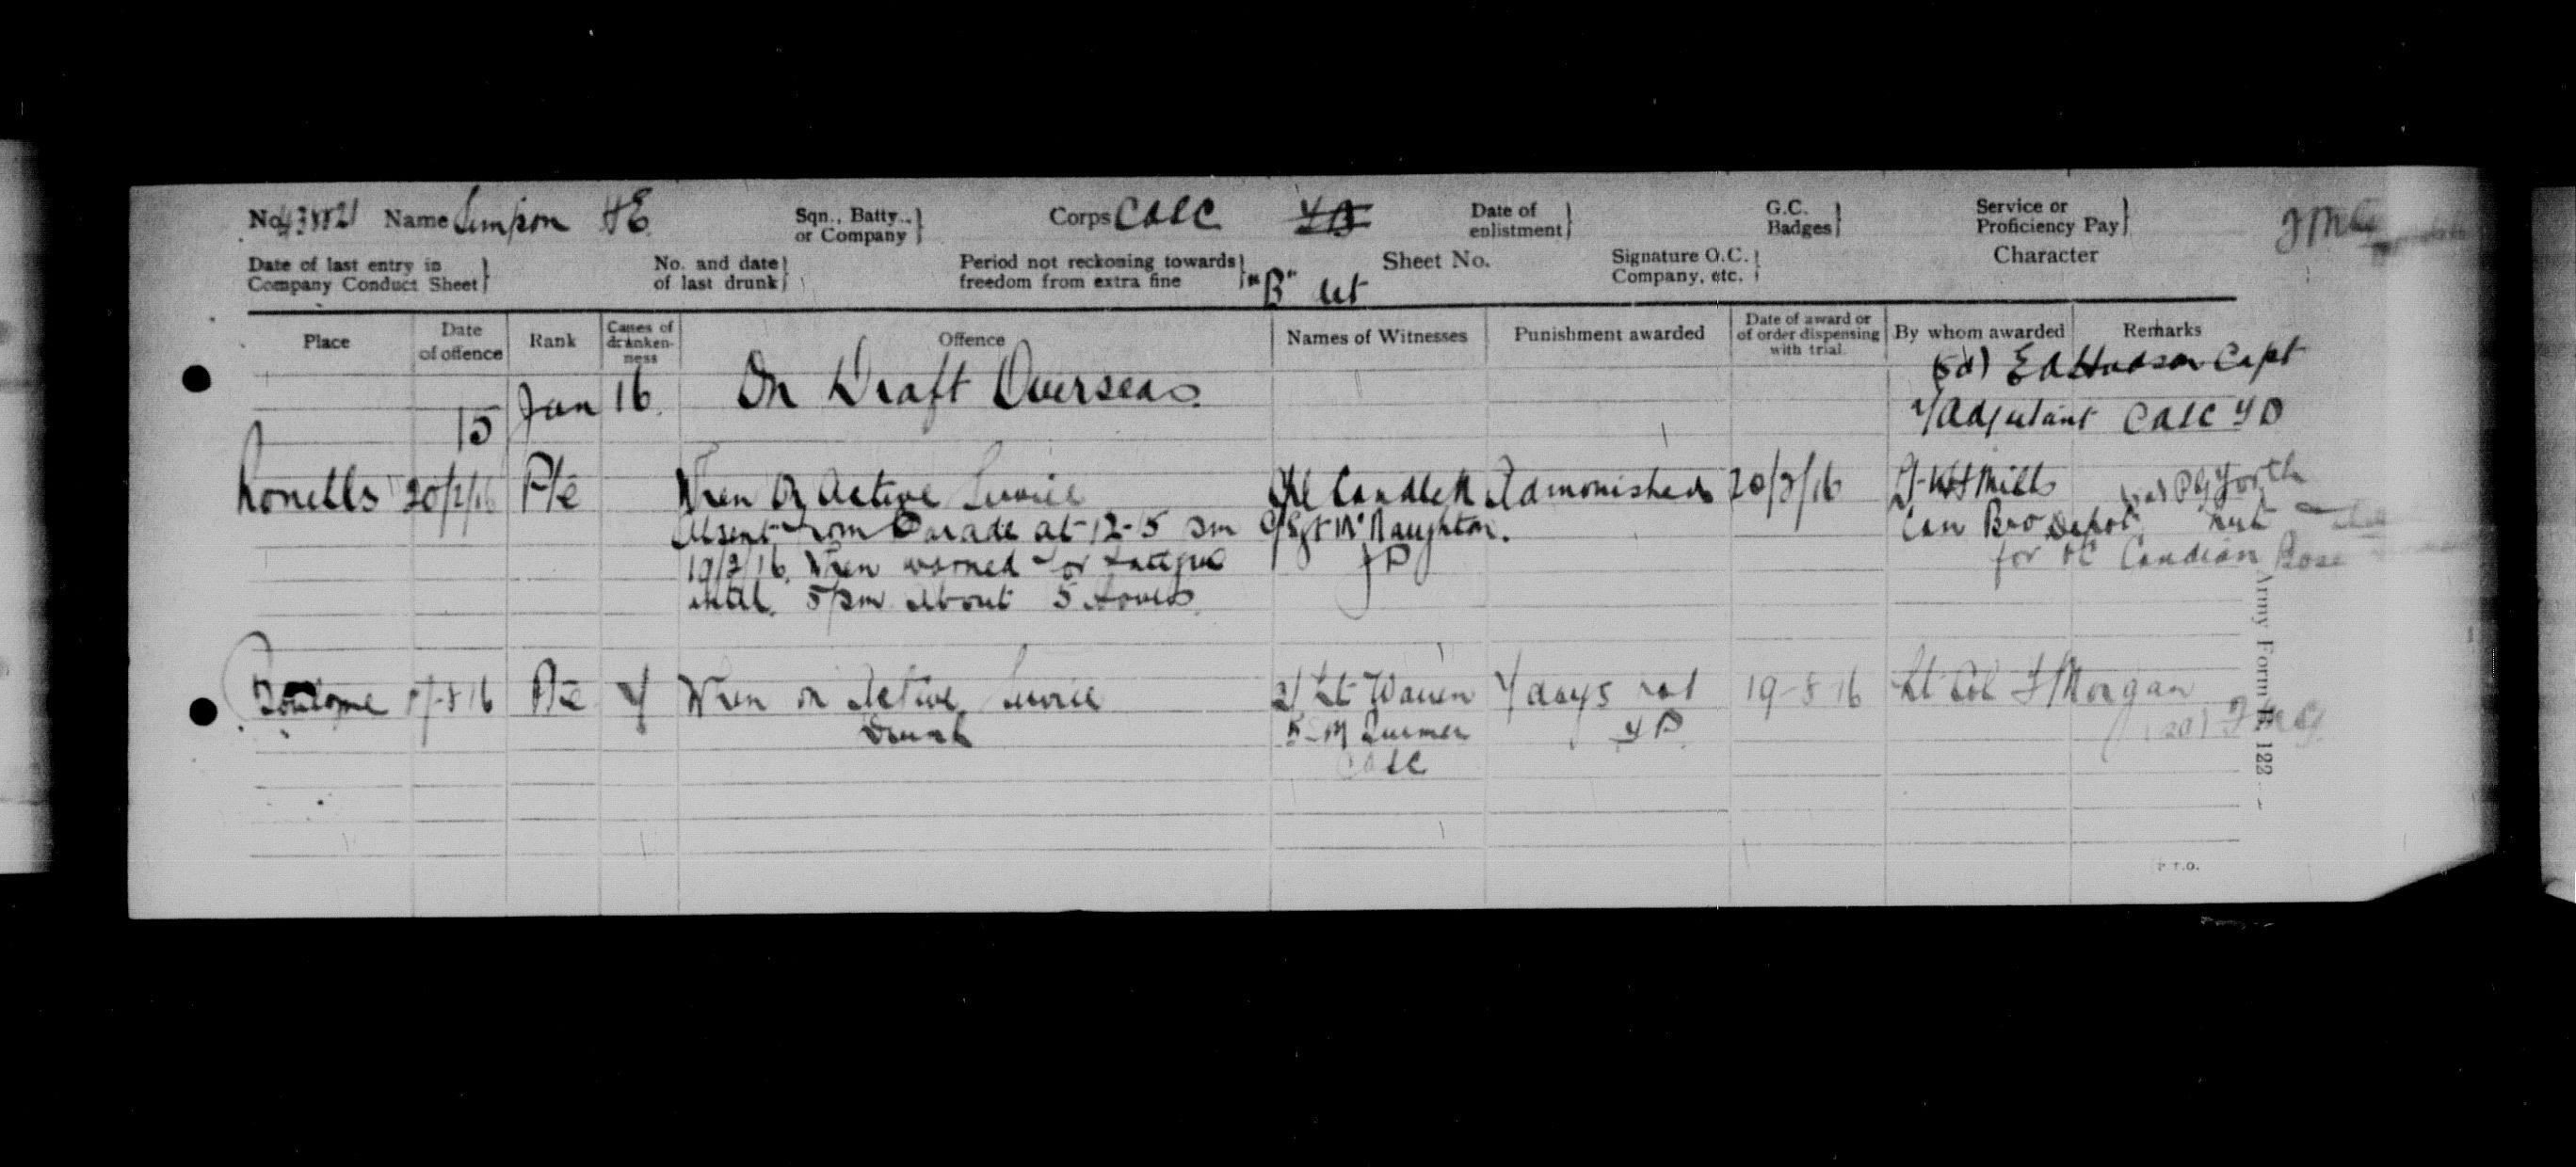 No. 438821 Name Simpson HE Sqn., Batty., or Company Corps CASC TD Date of enlistment G.C. Badges Service or Proficiency Pay
Date of last entry in Company Conduct Sheet No. and date of last drunk Period not reckoning towards freedom from extra fine "B" Sheet No. Signature O.C. Company, etc. Character
Place Date of offence Rank Cases of drunkenness Offence Names of Witnesses Punishment awarded Date of award or of order dispensing with trial. By whom awarded Remarks
15 Jan 16. On Draft Overseas (Sd) EA Hudson Capt
Adjutant CASC TD
20/2/16 Pte When On Active Service Admonished 20/2/16 Mills
Absent from Parade at 12-15 pm Sgt McNaughton. Can Depot
19/2/16. When warned for fatigue for OC Candian Base
until 5 pm about 5 hours
Boulogne -8 16 Pte When on Active Service 2/Lt Warren 7 days 19-8-16 Lt Col Morgan
Drunk
CASC
Army Form B. 122
P.T.O.